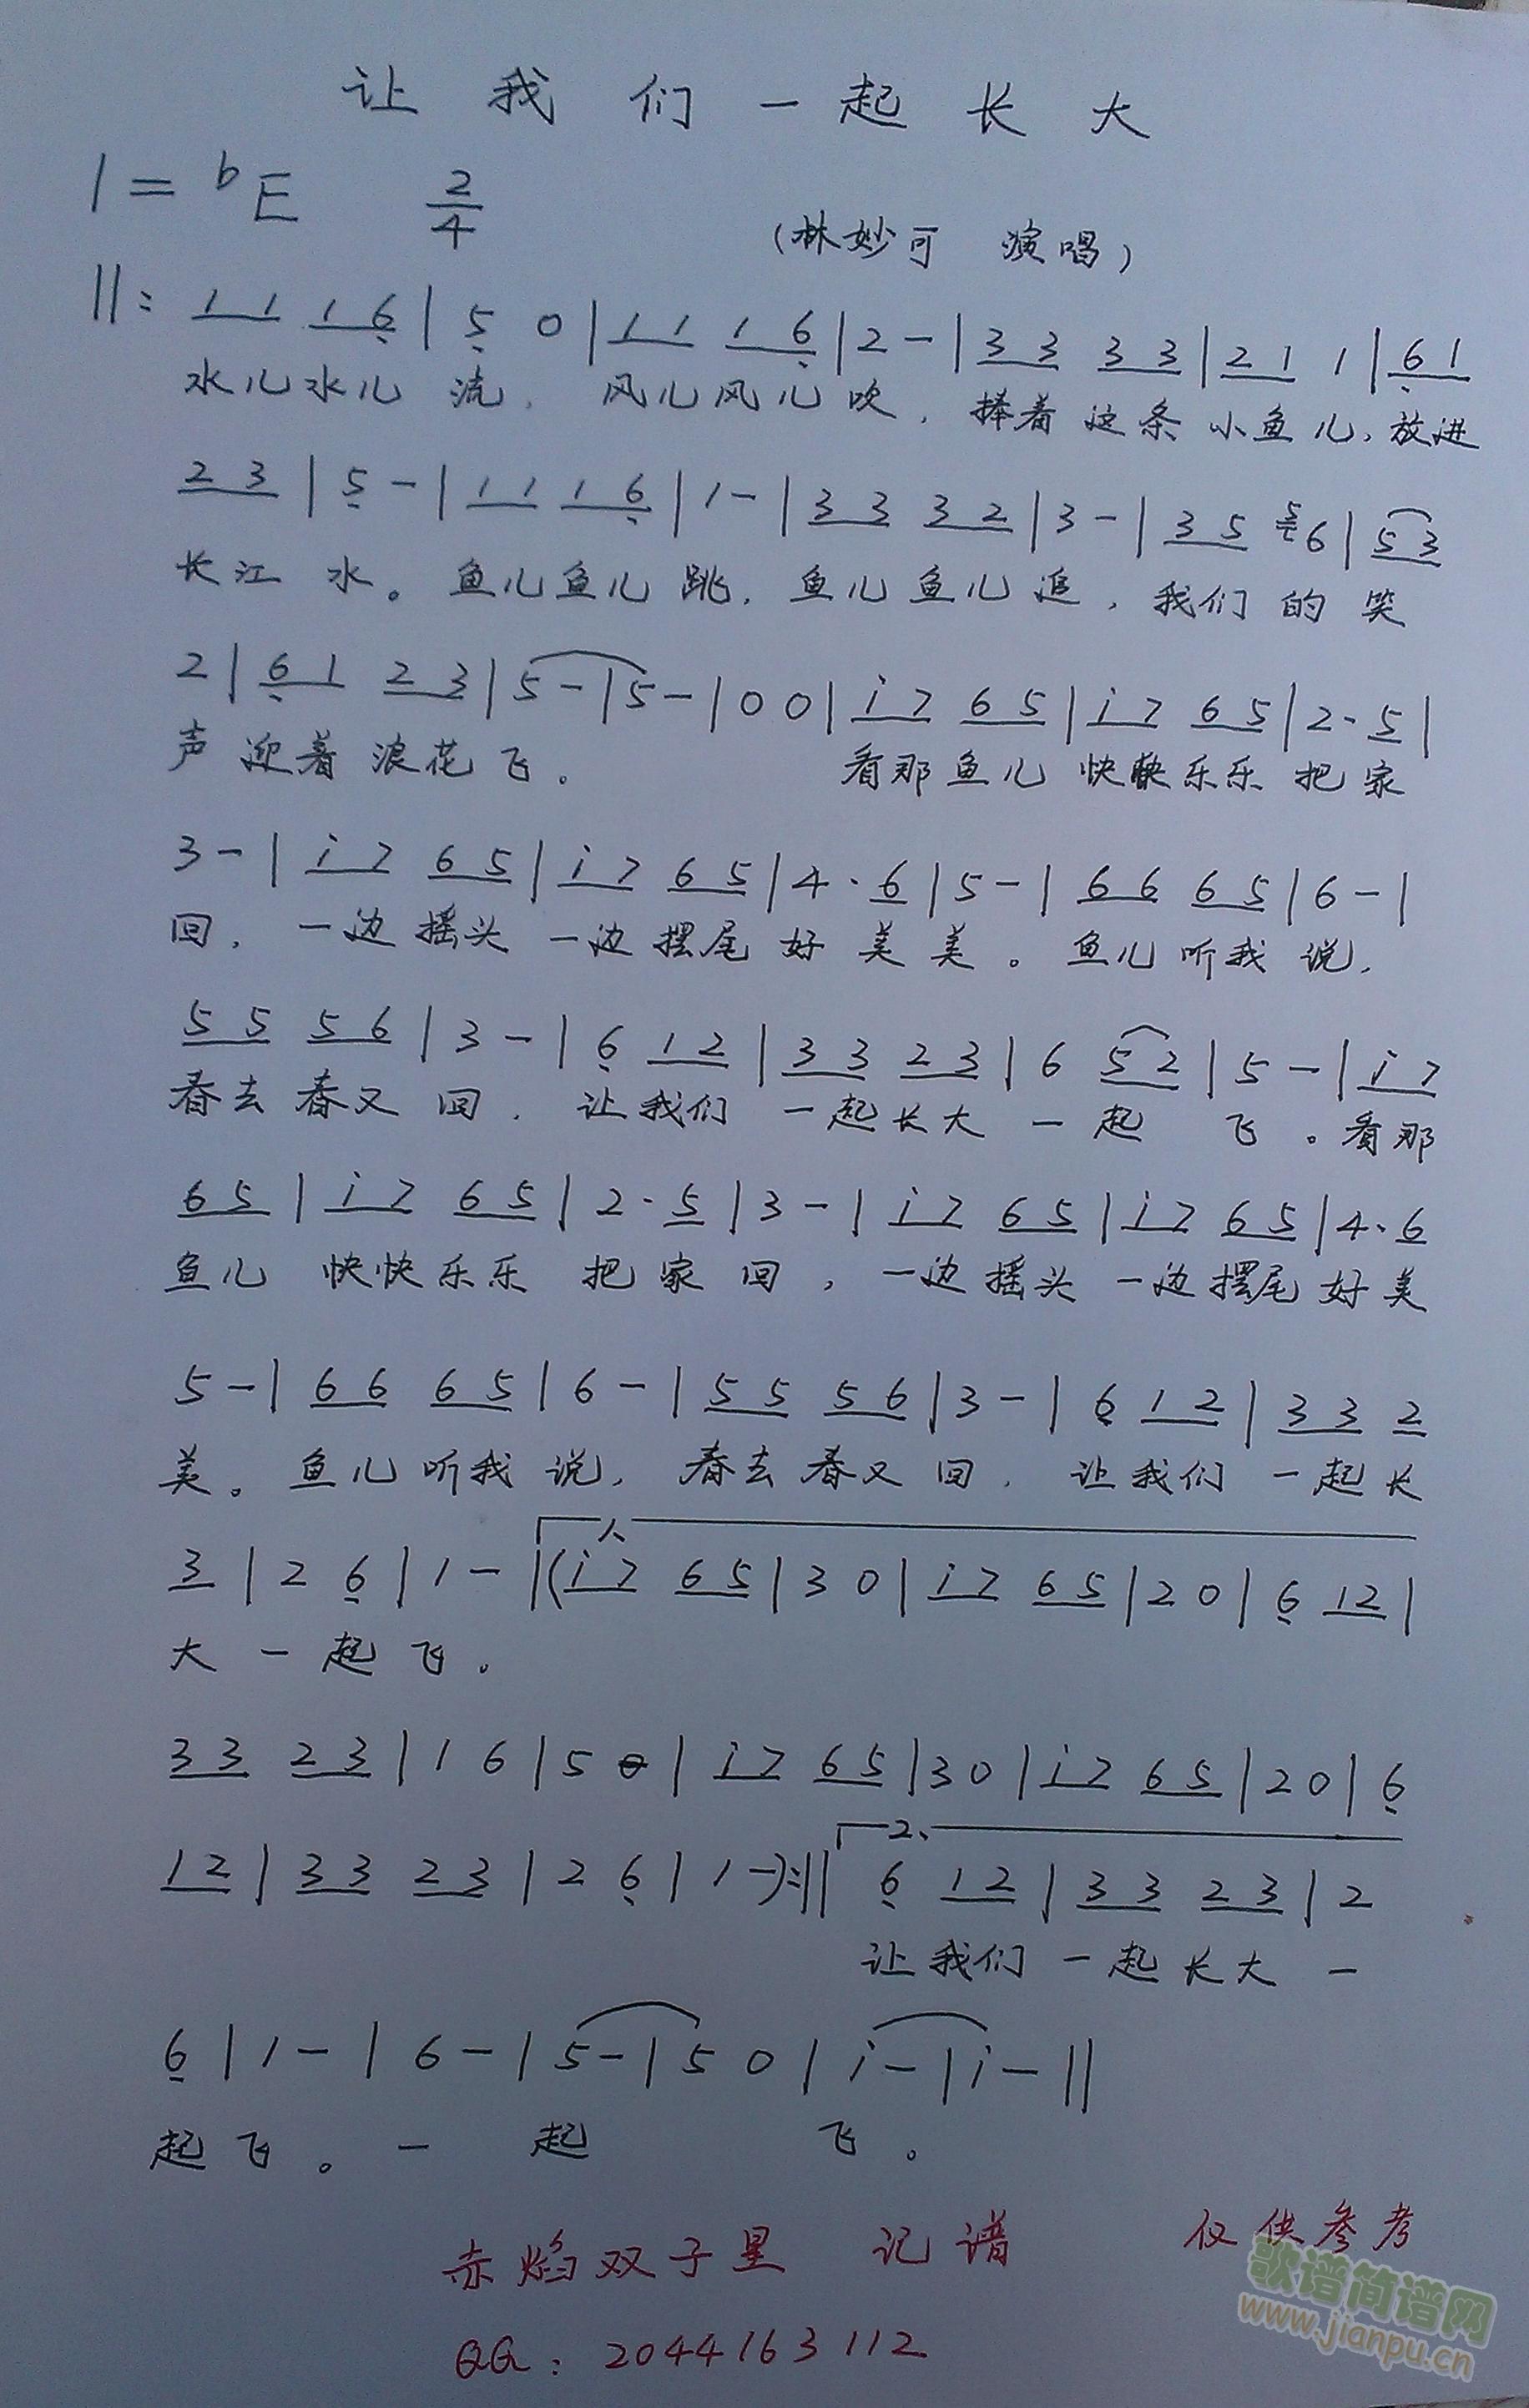 让我们一起长大
1=bE 2/4
(林妙可 演唱)
||: 1 1 1 6 | 5 0 | 1 1 1 6 | 2 - | 3 3 3 3 | 2 1 1 | 6 1
水儿水儿 流, 风儿风儿吹, 捧着这条小鱼儿, 放进
2 3 | 5 - | 1 1 1 6 | 1 - | 3 3 3 2 | 3 - | 3 5 5 6 | 5 3
长江 水。鱼儿鱼儿 跳, 鱼儿鱼儿追, 我们的 笑
2 | 6 1 2 3 | 5 - | 5 - | 0 0 | i 7 6 5 | i 7 6 5 | 2· 5 |
声 迎着 浪花 飞。 看那鱼儿 快快乐乐 把 家
3 - | i 7 6 5 | i 7 6 5 | 4· 6 | 5 - | 6 6 6 5 | 6 - |
回, 一边摇头 一边摆尾 好 美 美。鱼儿听我 说,
5 5 5 6 | 3 - | 6 1 2 | 3 3 2 3 | 6 5 2 | 5 - | i 7
春去春又 回, 让我们 一起长大 一 起 飞。看那
6 5 | i 7 6 5 | 2· 5 | 3 - | i 7 6 5 | i 7 6 5 | 4· 6
鱼儿 快快乐乐 把 家 回, 一边摇头 一边摆尾 好 美
5 - | 6 6 6 5 | 6 - | 5 5 5 6 | 3 - | 6 1 2 | 3 3 2
美。鱼儿听我 说, 春去春又 回, 让我们 一起长
1、
3 | 2 6 | 1 - |( i 7 6 5 | 3 0 | i 7 6 5 | 2 0 | 6 1 2 |
大 一 起 飞。
3 3 2 3 | 1 6 | 5 0 | i 7 6 5 | 3 0 | i 7 6 5 | 2 0 | 6
2、
1 2 | 3 3 2 3 | 2 6 | 1 -):|| 6 1 2 | 3 3 2 3 | 2
让我们 一起长大 一
6 | 1 - | 6 - | 5 - | 5 0 | i - | i - ||
起 飞。一 起 飞。
赤焰双子星 记谱 仅供参考
QQ: 2044163112
歌谱简谱网
www.jianpu.cn